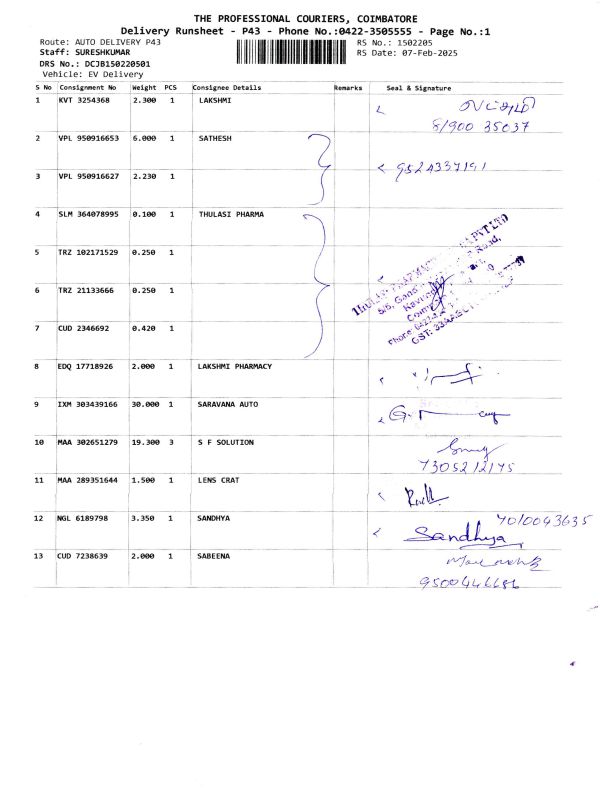 THE PROFESSIONAL COURIERS, COIMBATORE
Delivery Runsheet - P43 - Phone No.:0422-3505555 - Page No.:1
Route: AUTO DELIVERY P43 RS No.: 1502205
Staff: SURESHKUMAR RS Date: 07-Feb-2025
DRS No.: DCJB150220501
Vehicle: EV Delivery
S No Consignment No Weight PCS Consignee Details Remarks Seal & Signature
1 KVT 3254368 2.300 1 LAKSHMI
81900 35037
2 VPL 950916653 6.000 1 SATHESH
9524337191
3 VPL 950916627 2.230 1
4 SLM 364078995 0.100 1 THULASI PHARMA
5 TRZ 102171529 0.250 1
6 TRZ 21133666 0.250 1
7 CUD 2346692 0.420 1
8 EDQ 17718926 2.000 1 LAKSHMI PHARMACY
9 IXM 303439166 30.000 1 SARAVANA AUTO
10 MAA 302651279 19.300 3 S F SOLUTION
7305212175
11 MAA 289351644 1.500 1 LENS CRAT
12 NGL 6189798 3.350 1 SANDHYA 7010043635
Sandhya
13 CUD 7238639 2.000 1 SABEENA